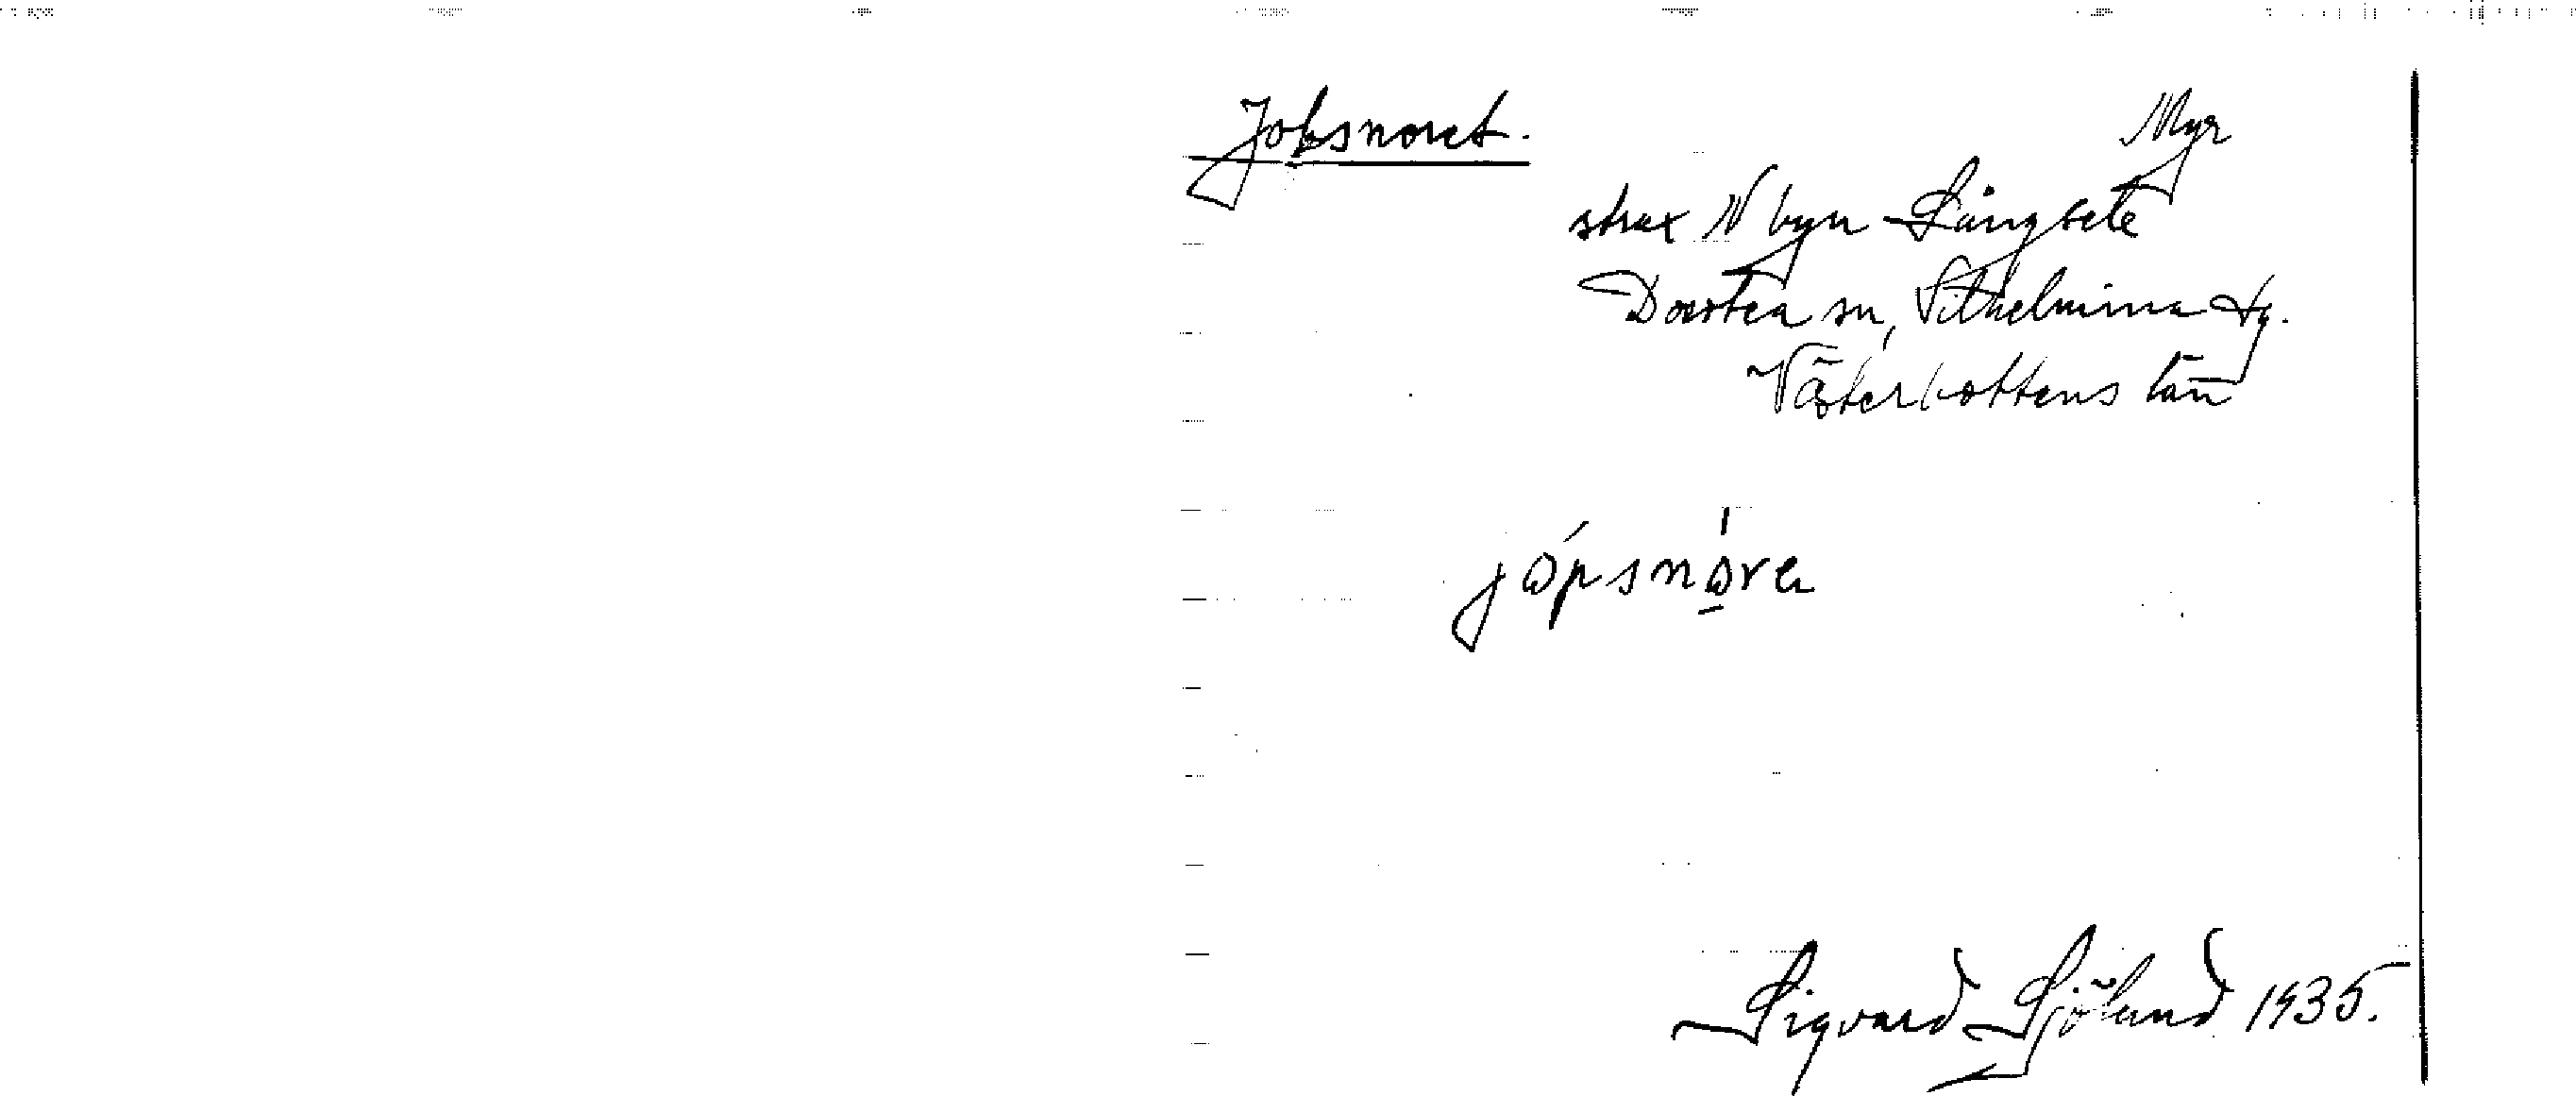 Jobsnoret.
Myr
strax N byn Långsele
Dorotea sn, Vilhelmina tg.
Västerbottens län
jópsnòra
Sigvard Sjölund 1935.